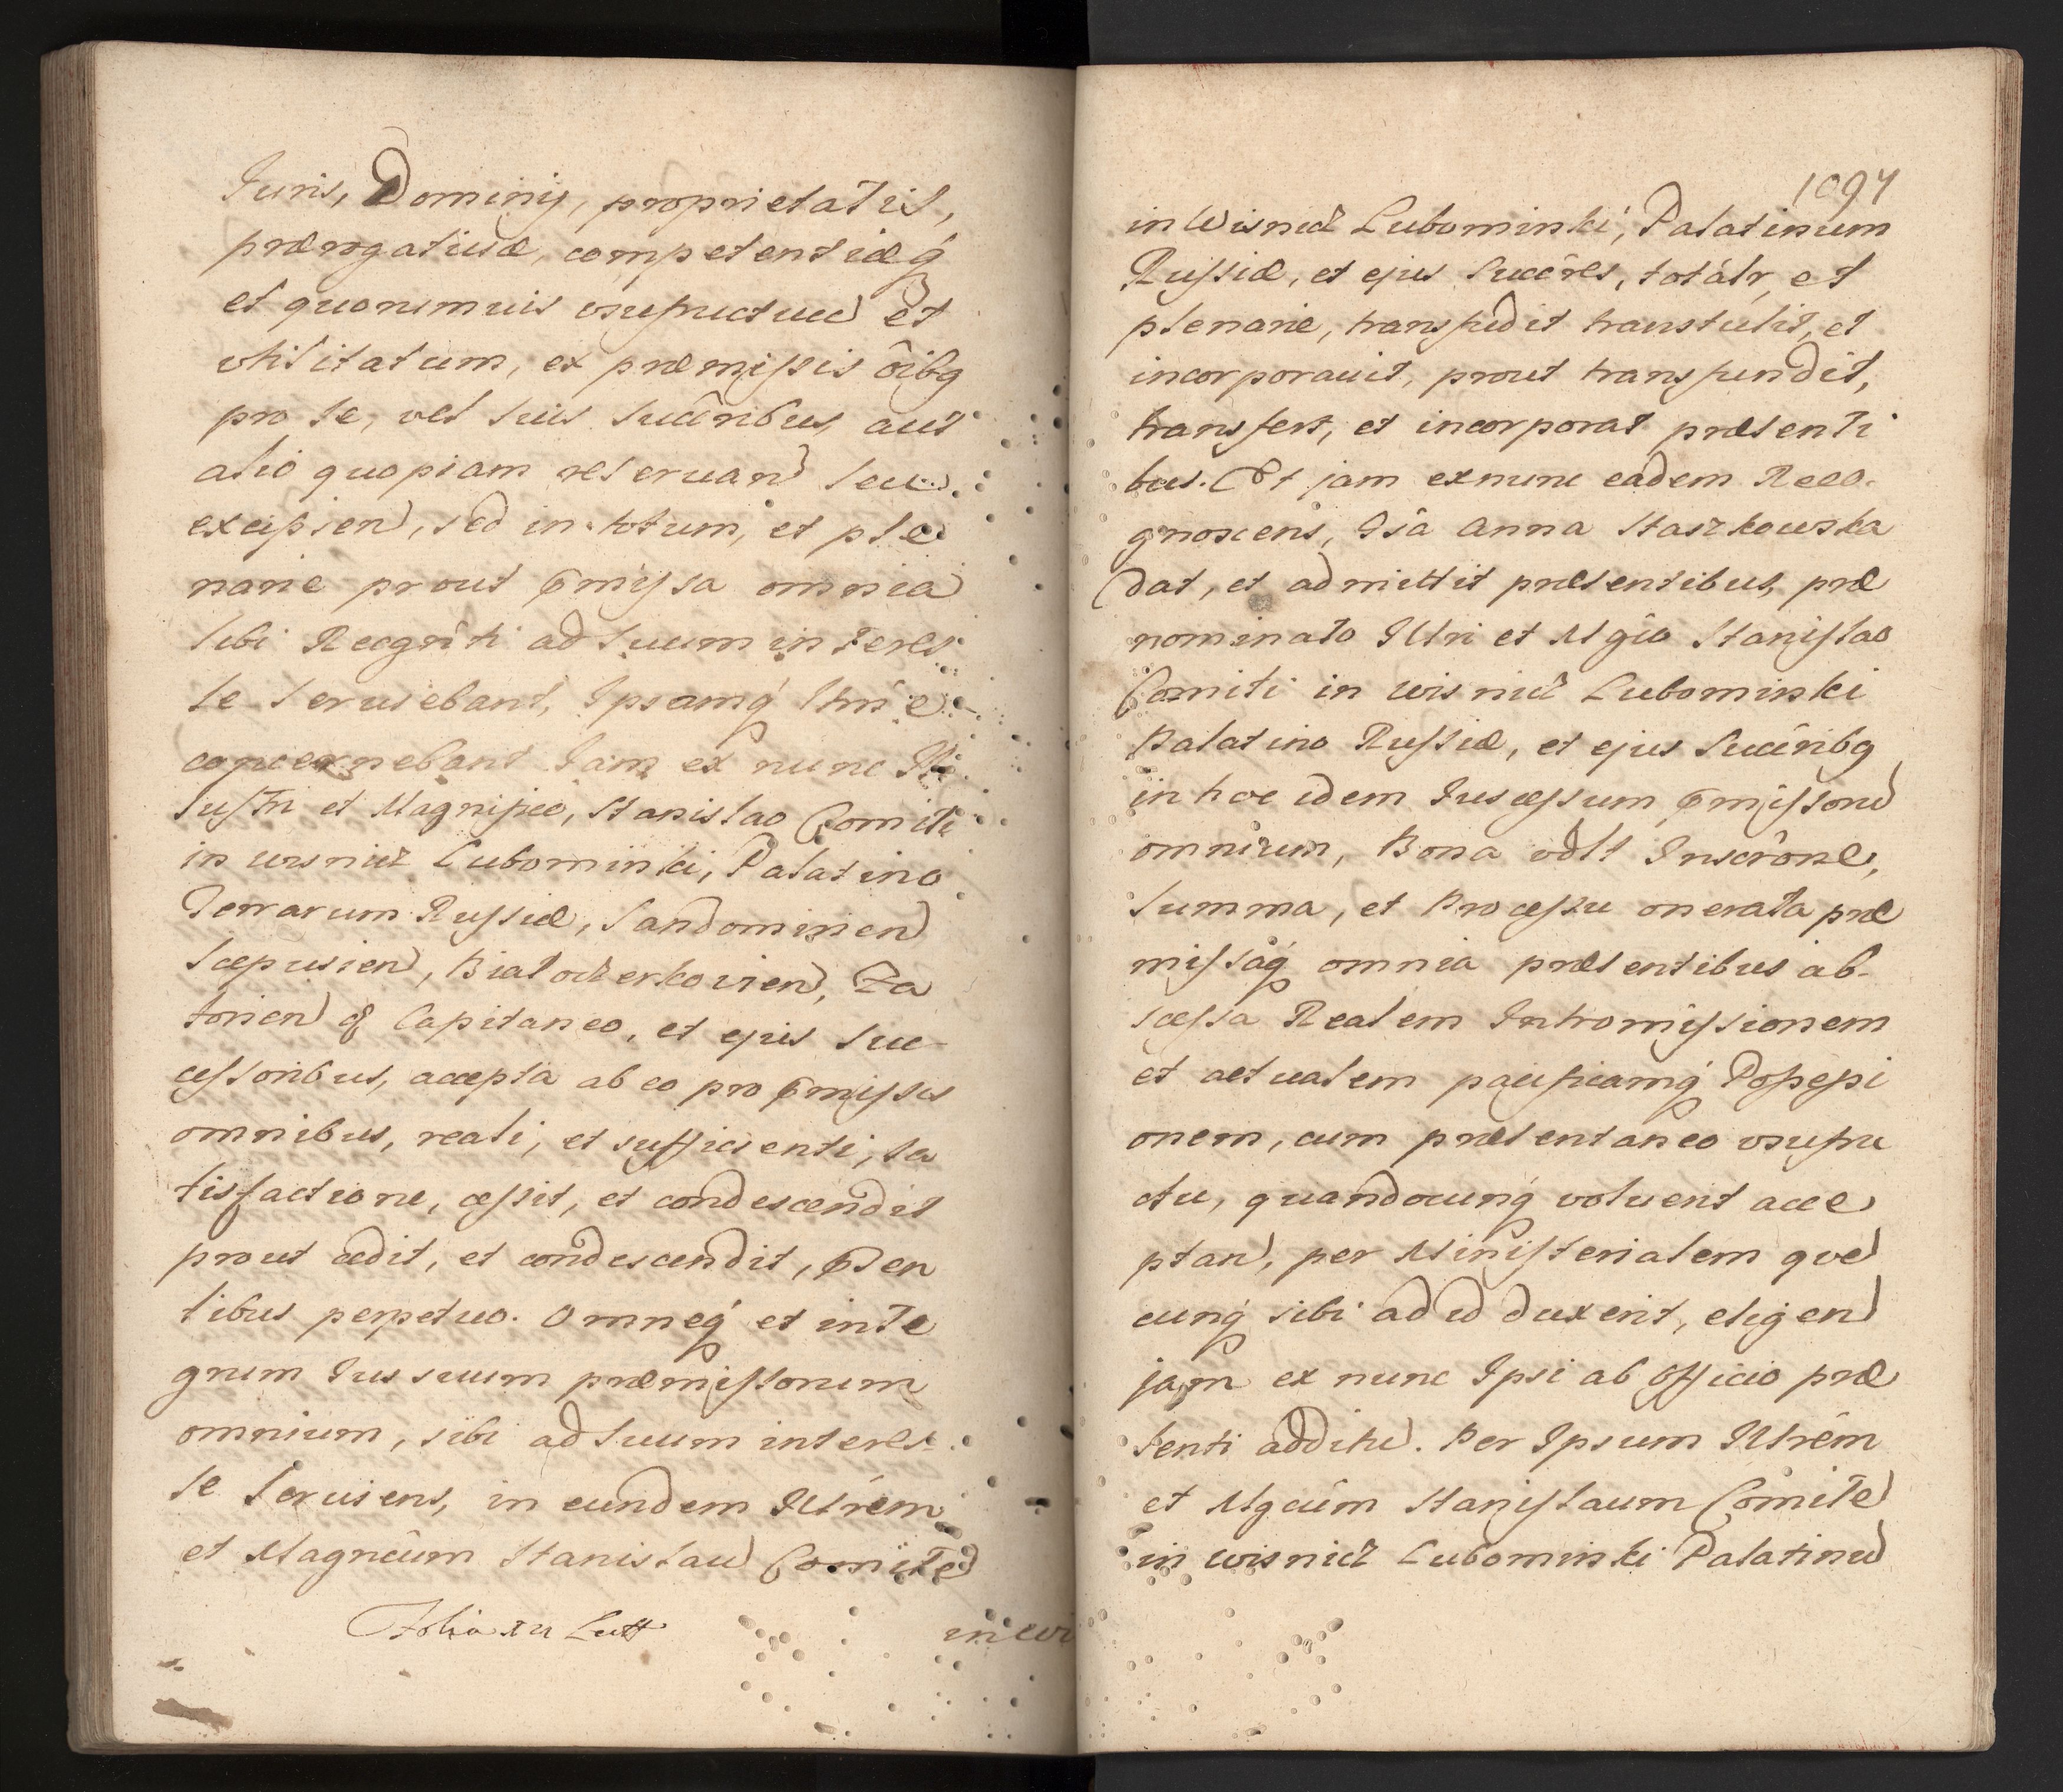 Juris, Dominij, proprietatis,
prærogatiuæ, competentiæq́
et quorumuis vsufructuu et
vtilitatum, ex præmissis ôibq
pro se, vel suis succrîbus, aut
alio quopiam reseruand seu
excipiend, sed in totum, et ple
narie prout pmissa omnia
sibi Recgnti ad suum interes
se seruiebant, Ipsamq́
concernebant Jam ex nunc Ill
lustri et Magnifico, Stanislao Comiti
in wisnicz Lubomirski, Palatino
Terrarum Russiæ, Sandomirien
Scepusien, Bialocterkovien, Za
torien & Capitaneo, et ejus suc-
cessoribus, accepta ab eo pro pmissis
omnibus, reali, et sufficienti, sa
tisfactione, cessit, et condescendit
prout cedit, et condescendit, pñsen
tibus perpetuo. Omneq́ et inte
grum Jus suum præmissorum
omnium, sibi ad suum interes
se seruiens, in eundem Illrêm
et Magncûm Stanislau Comite
in wi
1094
in Wisnicz Lubomirski, Palatinum
Russiæ, et ejus succêres, totâlr, et
plenarie, transfudit transtulit, et
incorporauit, prout transfundit,
transfert, et incorporat præsenti
bus. Et jam exnunc eadem Reco-
gnoscens, Gsâ Anna Staszkowska
dat, et admittit præsentibus, præ
nominato Illri et Mgco Stanislao
Comiti in wisnicz Lubomirski
Palatino Russiæ, et ejus succêribq
in hoc idem Jus cessum pmissoru
omnium, Bona vdlt Inscrône,
Summa, et Processu onerata præ
missaq́ omnia præsentibus ab-
scessa Realem Intromissionem
et actualem pacificamq́ Possessi
onem, cum præsentaneo vsufru
ctu, quandocunq́ voluerit acce
ptan, per Ministerialem que
cunq́ sibi ad id duxerit, eligen
jam ex nunc Ipsi ab officio præ
senti additu. Per Ipsum Illrêm
et Mgcûm Stanislaum Comite
in wisnicz Lubomirski Palatinu